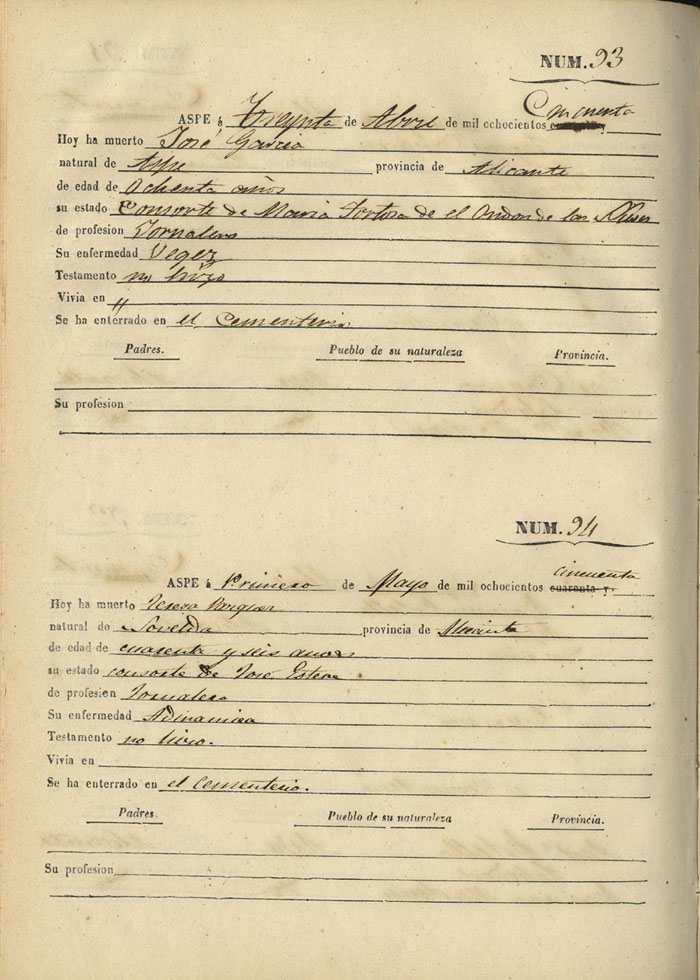 NUM. 93
ASPE á Treynta de Abril de mil ochocientos Cincuenta
Hoy ha muerto José Garcia
natural de Aspe provincia de Alicante
de edad de Ochenta años
su estado Consorte de Maria Tortosa de el
de profesion Jornalero
Su enfermedad Vegez
Testamento no hizo
Vivia en "
Se ha enterrado en el cementerio.
Padres. Pueblo de su naturaleza Provincia.
Su profesion
NUM. 94
ASPE á Primero de Mayo de mil ochocientos cincuenta cuarenta y
Hoy ha muerto Teresa
natural de Novelda provincia de Alicante
de edad de cuarenta y seis anos
su estado consorte de José Esteve
de profesion Jornalero
Su enfermedad Adinamica
Testamento no hizo.
Vivia en
Se ha enterrado en el cementerio.
Padres. Pueblo de su naturaleza Provincia.
Su profesion